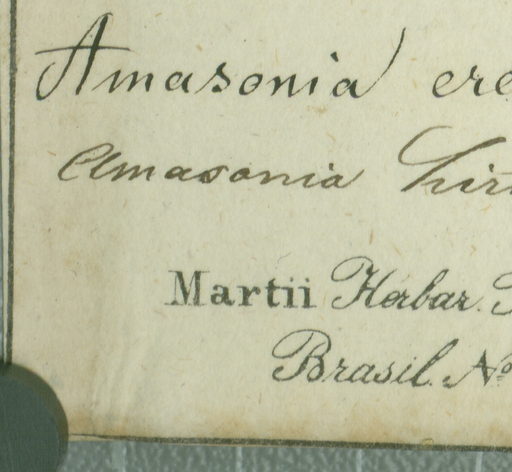 Amasonia ere
Amasonia hirt
Martii Herbar.
Brasil. No